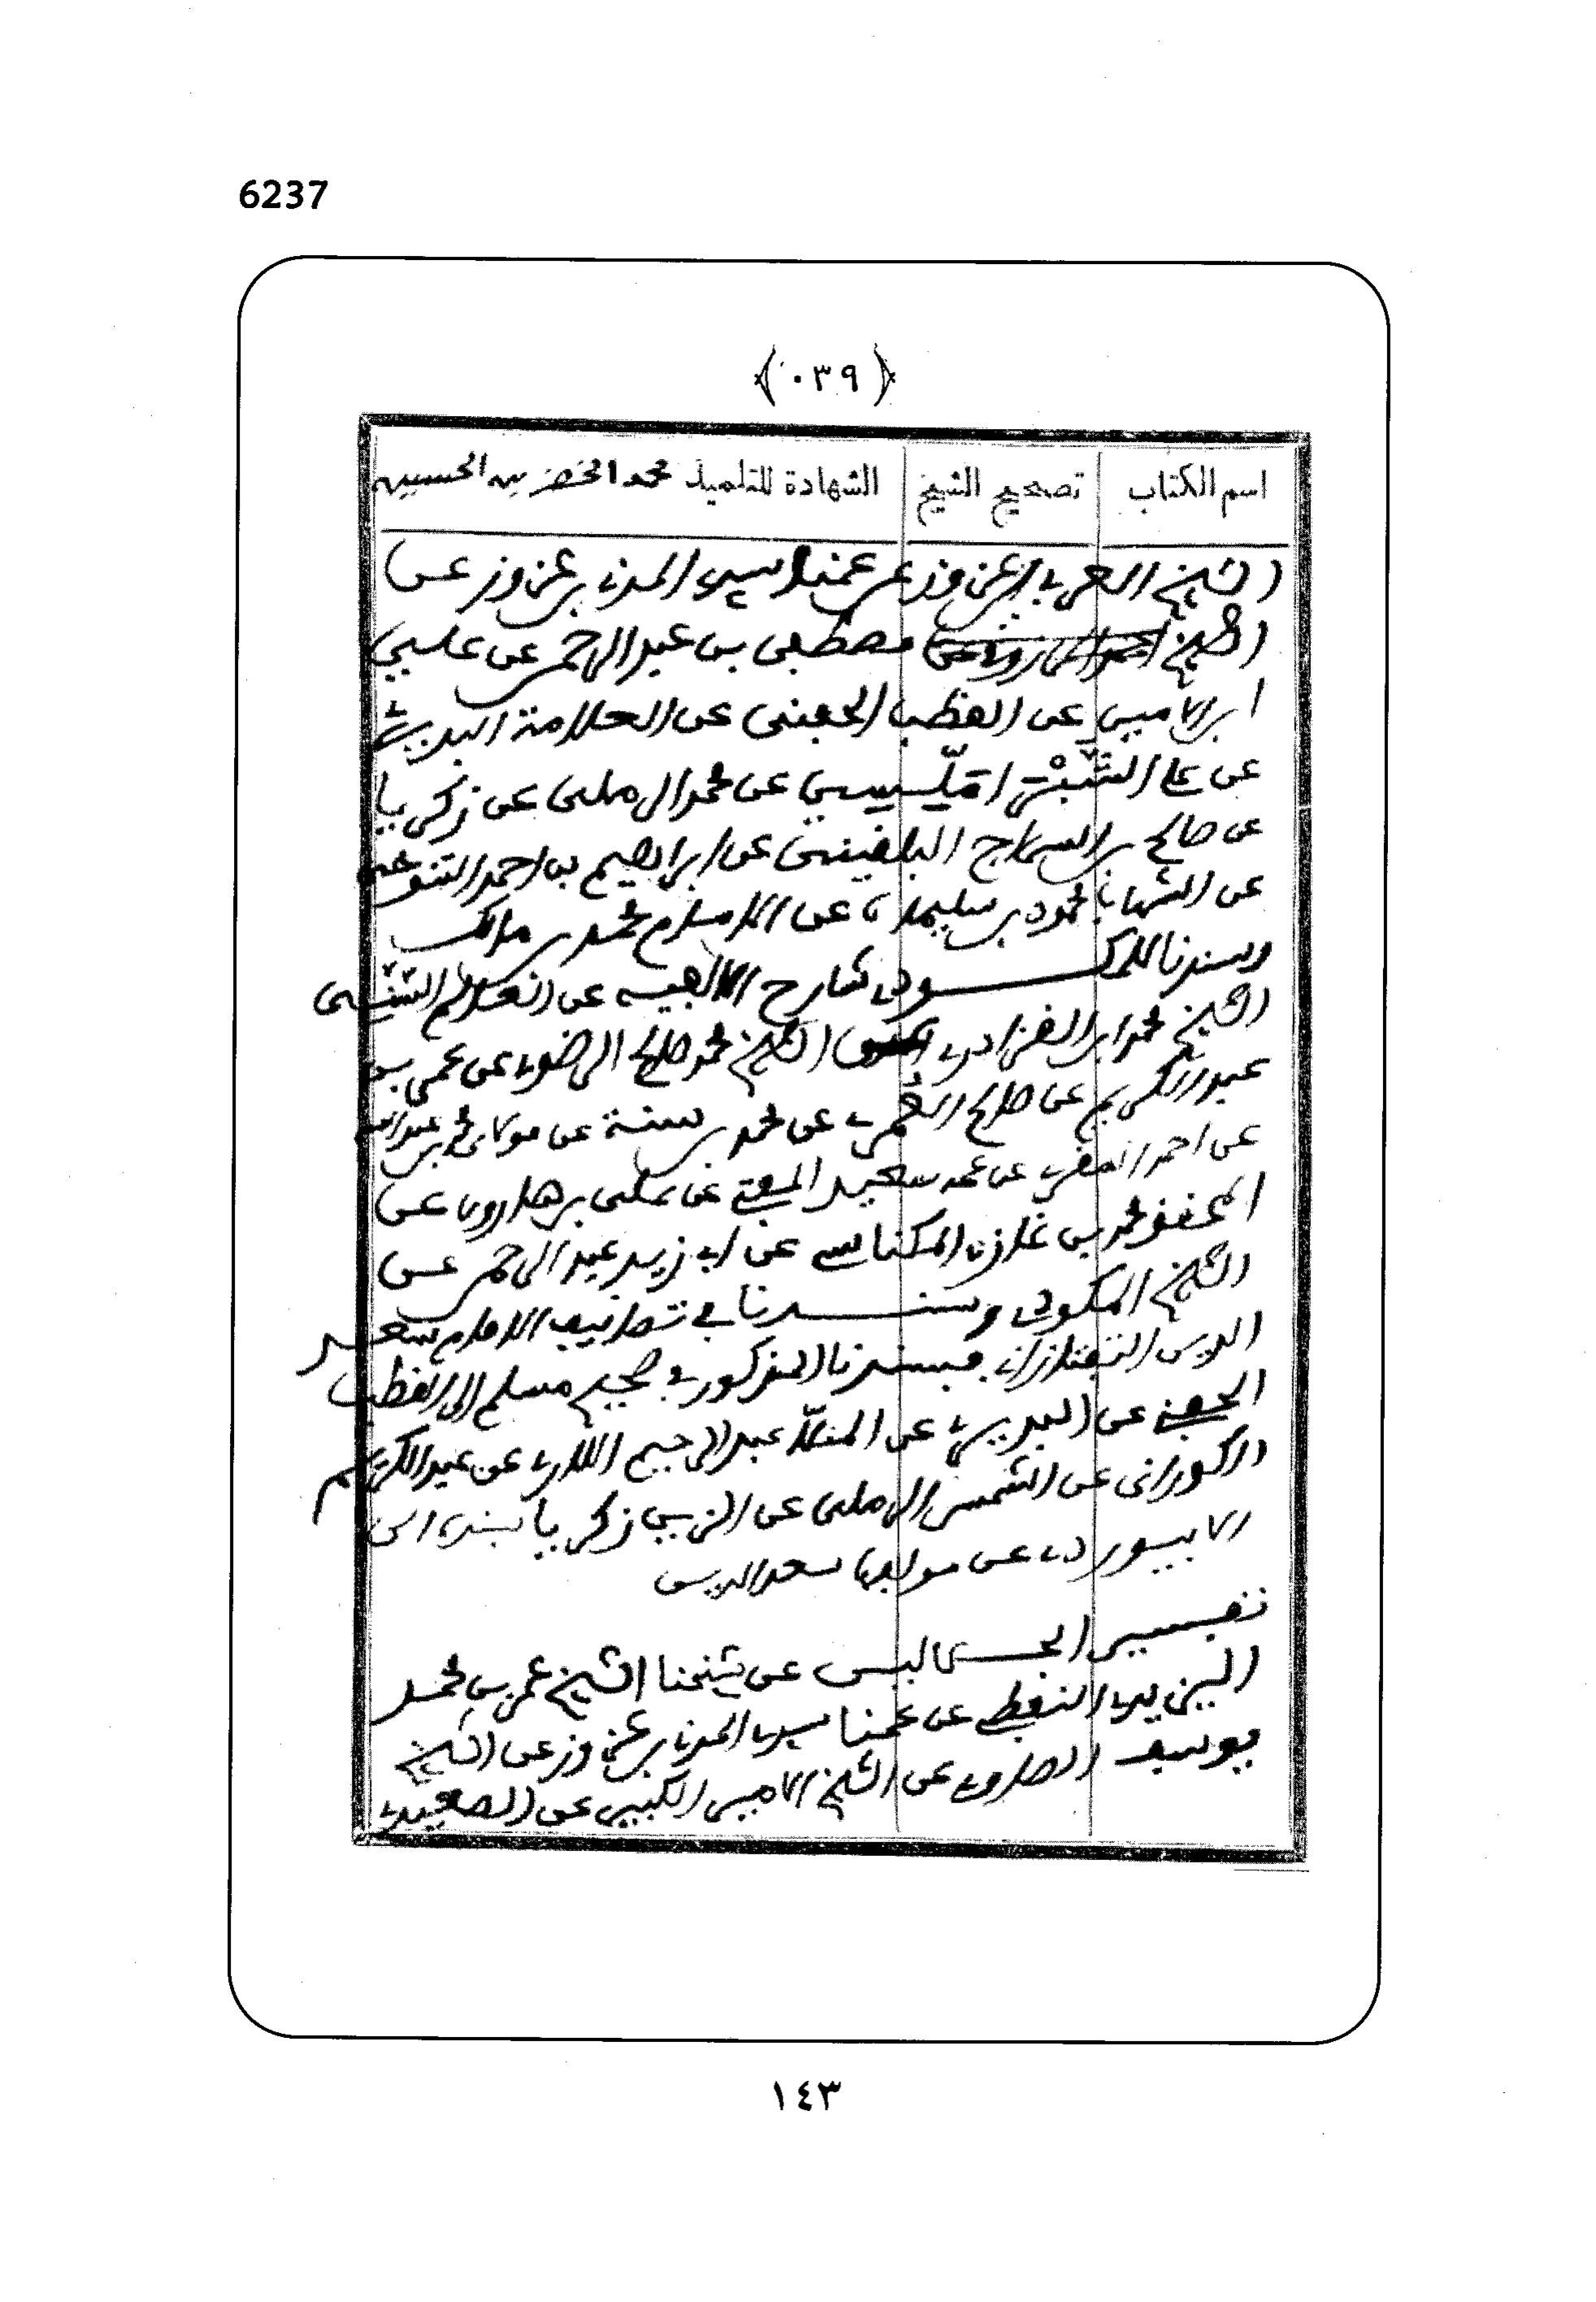 6237
﴿٠٣٩﴾
اسم الكتاب تصحيح الشيخ الشهادة للتلميذ محمد الخضر بن الحسين
الشيخ العربي بن عزوز عن عمنا سيدي المدني بن عزوز عن
الشيخ مصطفى بن عبد الرحمن عن علي
ابن الامين عن القطب الحفني عن العلامة البديري
عن علي الشبراملسي عن محمد الرملي عن زكريا
عن صالح بن السراج البلقيني عن ابراهيم بن احمد التنوخي
عن الشهاب محمود بن سليمان عن الامام محمد بن مالك
وسندنا للمكودي شارح الالفية عن
الشيخ محمد ابن القزادري الشيخ محمد صالح الرضوي عن عمر بن
عبد الكريم عن صالح العمري عن محمد بن سنة عن مولاي محمد بن عبد الله
عن احمد المقري عن عمه سعيد المفتي عن علي بن هارون عن
المحقق محمد بن غازي المكناسي عن ابي زيد عبد الرحمن عن
الشيخ المكودي وسندنا في تصانيف الامام سعد
الدين التفتازاني فبسندنا المذكور في صحيح مسلم الى القطب
الحفني عن البديري عن المنلا عبد الرحيم اللاري عن عبد الكريم
الكوراني عن الشمس الرملي عن الزين زكريا بسنده الى
الابيوردي عن مولانا سعد الدين
تفسير الجلالين عن شيخنا الشيخ عمر بن محمد
النفطي عن عمنا سيدي المدني بن عزوز عن الشيخ
يوسف الصاوي عن الشيخ الامير الكبير عن الصعيدي
١٤٣